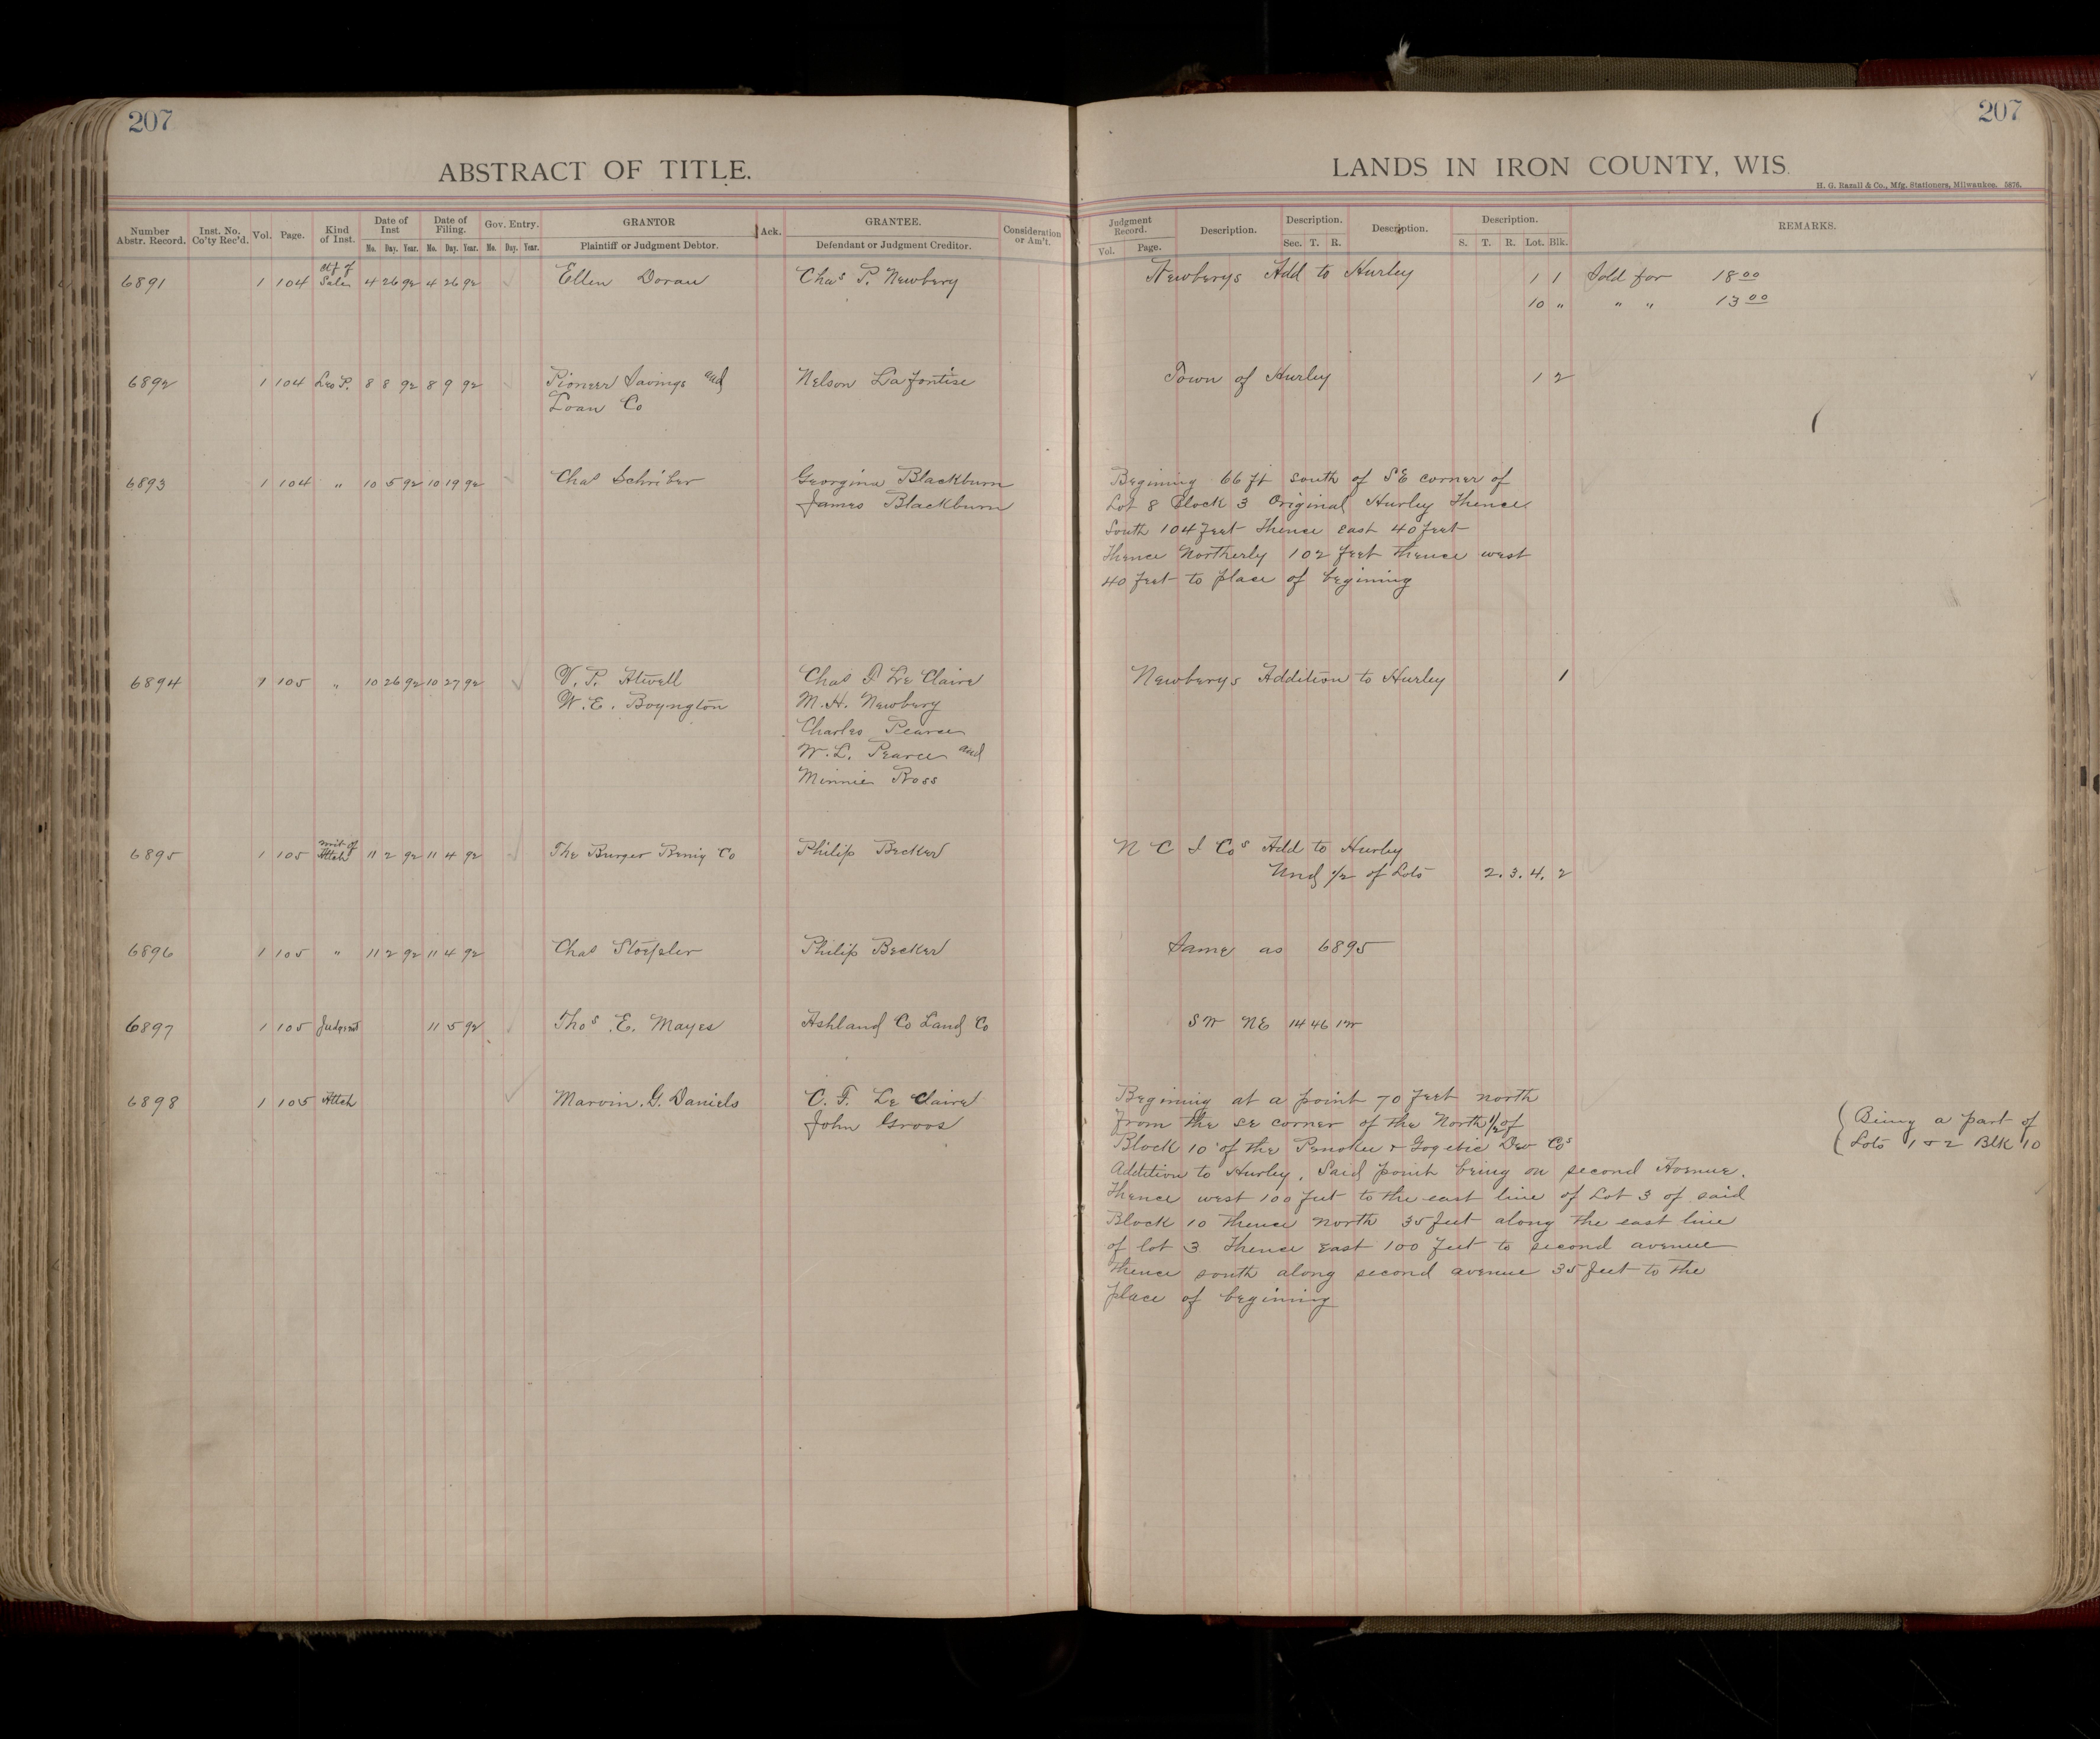 207
207
ABSTRACT OF TITLE.
LANDS IN IRON COUNTY, WIS.
H. G. Razall & Co., Mfg. Stationers, Milwaukee. 5876.
Number Abstr. Record. Inst. No. Co'ty Rec'd. Vol. Page. Kind of Inst. Date of Inst Date of Filing. Gov. Entry. GRANTOR Ack. GRANTEE. Consideration or Am't. Judgment Record. Description. Description. Description. Description. REMARKS.
Mo. Day. Year. Mo. Day. Year. Mo. Day. Year. Plaintiff or Judgment Debtor. Defendant or Judgment Creditor. Vol. Page. Sec. T. R. S. T. R. Lot. Blk.
6891 1 104 Ctf of Sale 4 26 92 4 26 92 Ellen Doran Chas P. Newbery Newberys Add to Hurley 1 1 Sold for 18 00
10 " " " 13 00
6892 1 104 Lis P. 8 8 92 8 9 92 Pioneer Savings and Nelson LaFontise Town of Hurley 1 2
Loan Co
6893 1 104 " 10 5 92 10 19 92 Chas Schriber Georgina Blackburn Begining 66 ft south of SE corner of
James Blackburn Lot 8 Block 3 Original Hurley Thence
South 104 feet Thence East 40 feet
Thence Northerly 102 feet thence west
40 feet to place of begining
6894 1 105 " 10 26 92 10 27 92 W. P. Atwell Chas F Le Claire Newberys Addition to Hurley 1
W. E. Boyngton M. H. Newbery
Charles Pearce
W. L. Pearce and
Minnie Ross
6895 1 105 writ of Attch 11 2 92 11 4 92 The Burger Brewig Co Philip Becker N C I Cos Add to Hurley
Und 1/2 of Lots 2. 3. 4. 2
6896 1 105 " 11 2 92 11 4 92 Chas Philip Becker Same as 6895
6897 1 105 Judgmt 11 5 92 Thos. E. Mayes Ashland Co Land Co SW NE 14 46 1W
6898 1 105 Attch Marvin. G. Daniels C. F. Le Claire Beginning at a point 70 feet north
John Groos from the SE corner of the North 1/2 of Being a part of
Block 10 of the Penokee & Gogebic Dev Cos Lots 1 & 2 Blk 10
Addition to Hurley, Said point being on second Avenue.
Thence west 100 feet to the east line of Lot 3 of said
Block 10 thence north 35 feet along the east line
of lot 3 Thence East 100 feet to second avenue
thence south along second avenue 35 feet to the
place of begining